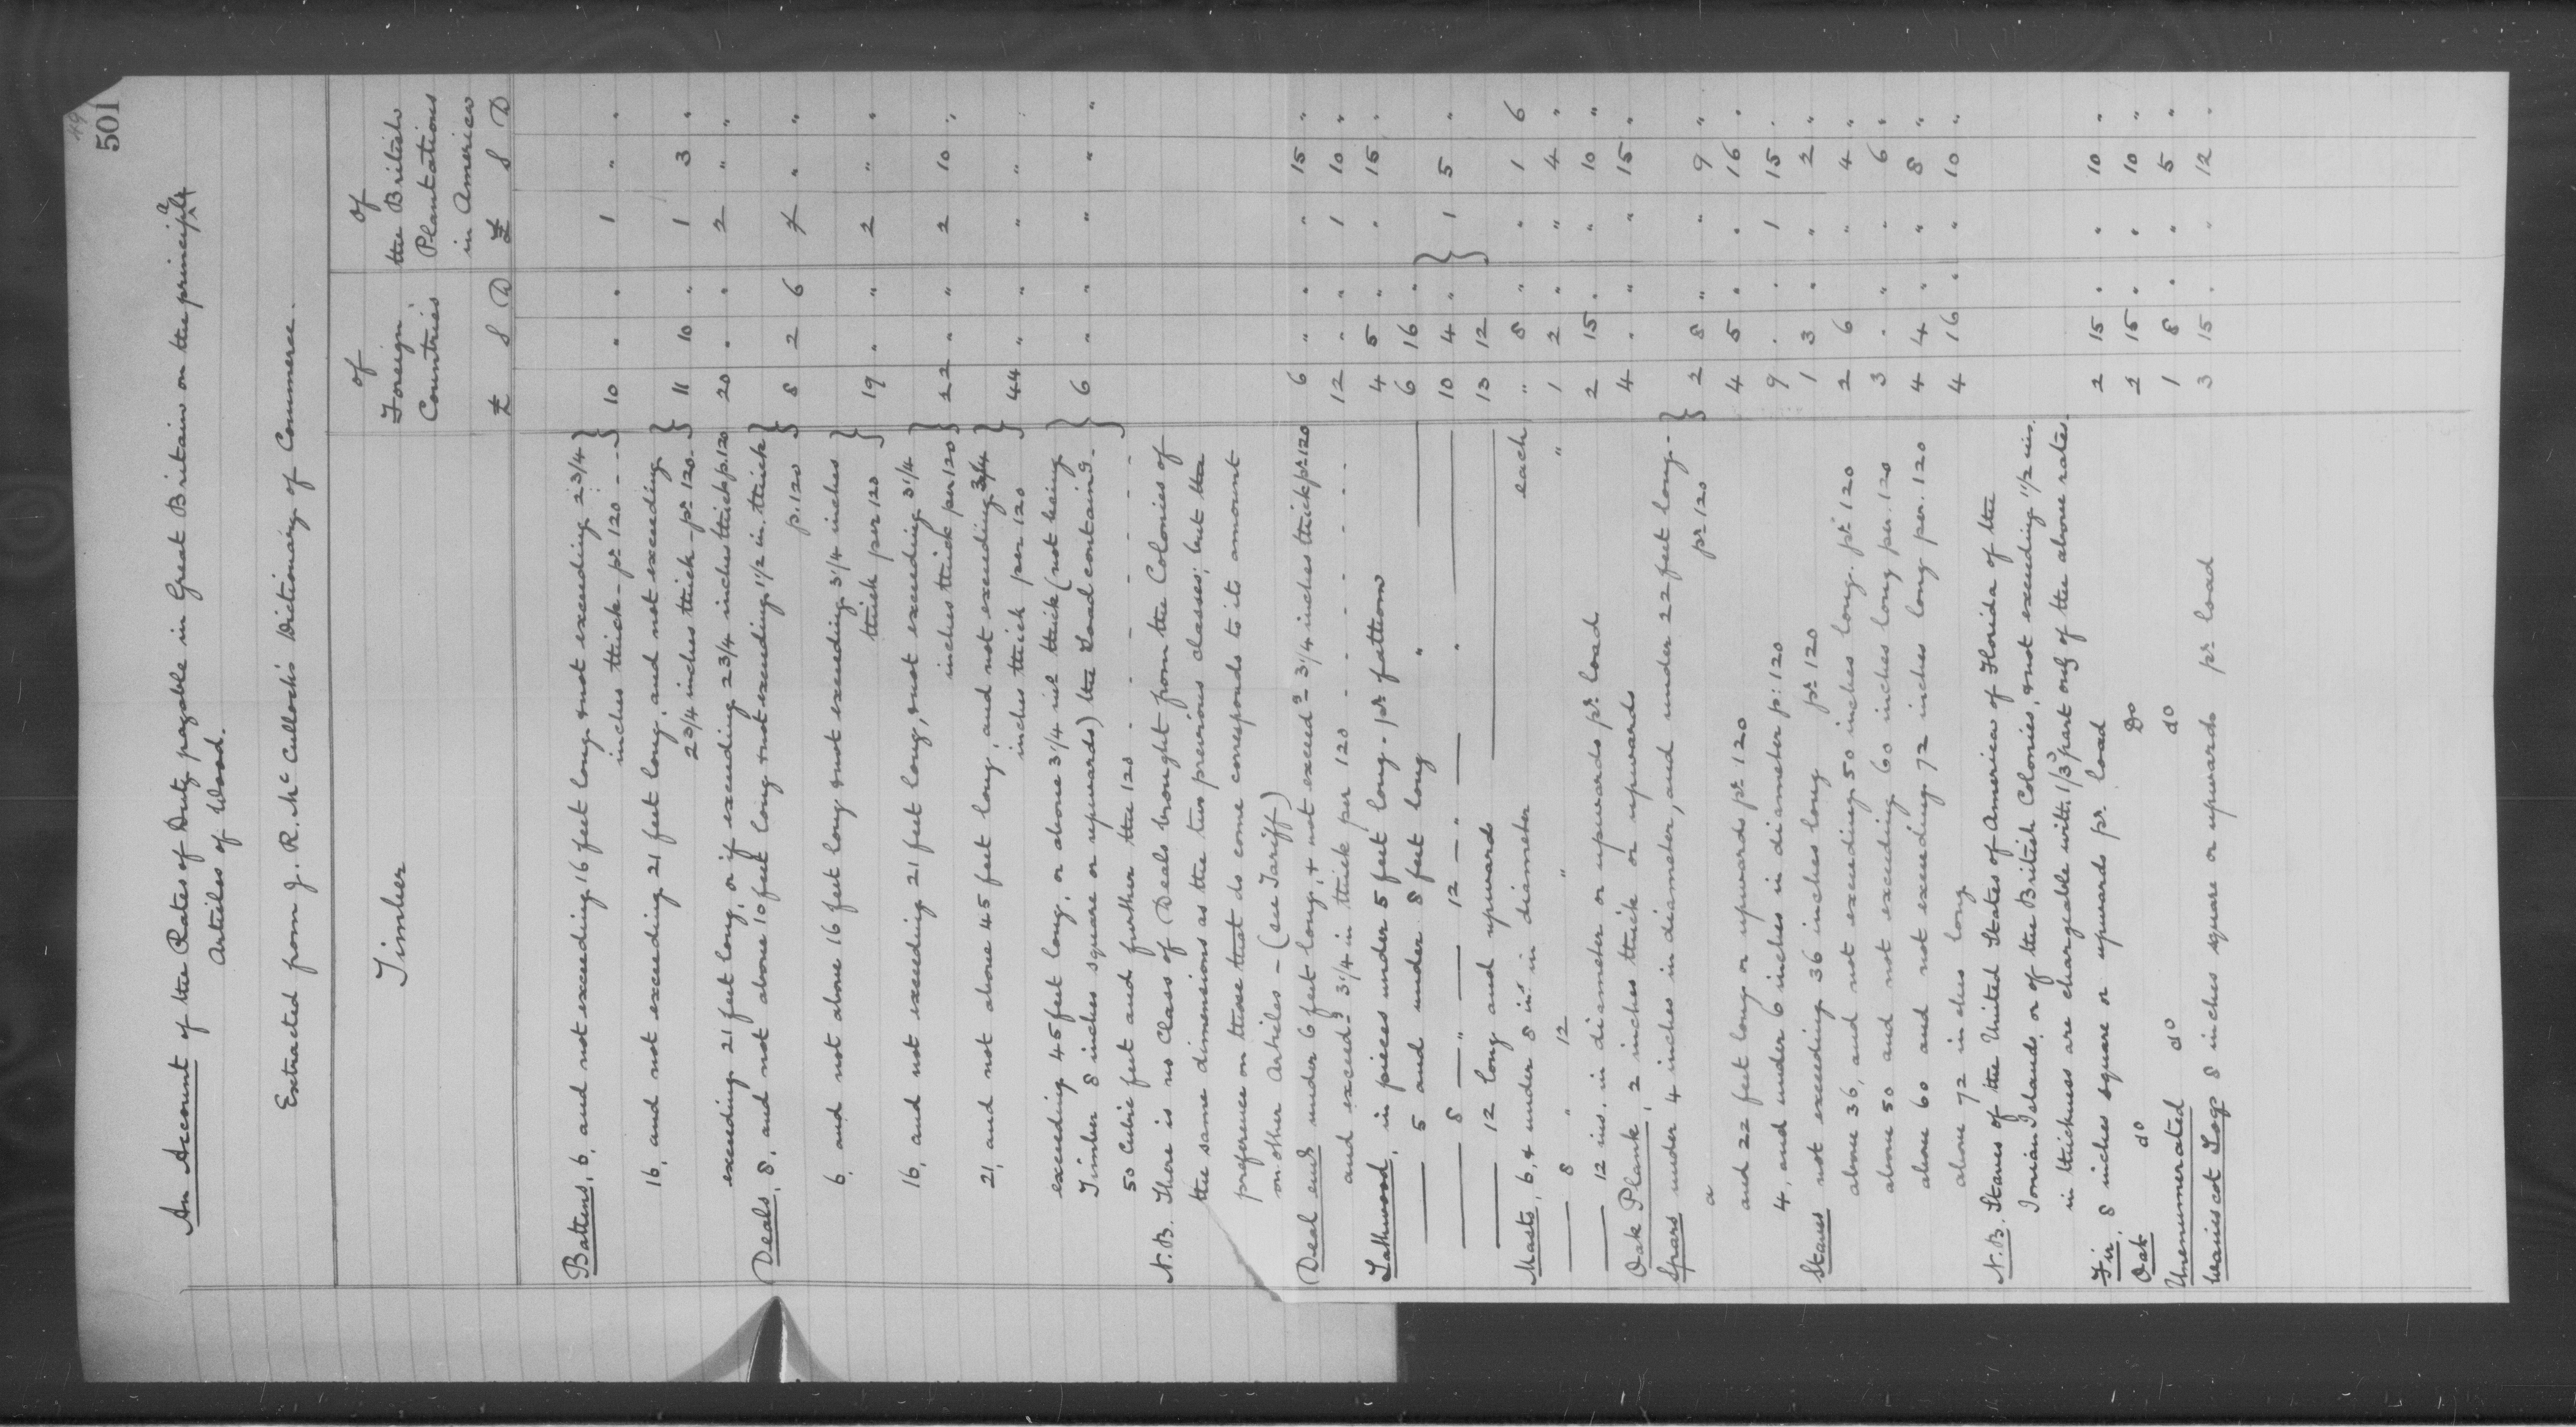 49
501
An Account of the Rates of Duty payable in Great Britain on the principal
Articles of Wood.
Extracted from J. R. Mc Culloch's Dictionary of Commerce.
Timber
of Foreign Countries
of the British Plantations in America
£ S D £ S D
Battens, 6, and not exceeding 16 feet long & not exceeding 2 3/4
inches thick - pr 120 - - - } 10 " " 1 " "
16, and not exceeding 21 feet long, and not exceeding
2 3/4 inches thick - pr 120 - } 11 10 " 1 3 "
exceeding 21 feet long, or if exceeding 2 3/4 inches thick p. 120 20 " " 2 " "
Deals, 8, and not above 10 feet long & not exceeding 1 1/2 in. thick
p. 120 } 8 2 6 " "
6, and not above 16 feet long & not exceeding 3 1/4 inches
thick per 120 } 19 " " 2 " "
16, and not exceeding 21 feet long, & not exceeding 3 1/4
inches thick per 120 } 22 " " 2 10 "
21, and not above 45 feet long, and not exceeding 3 1/4
inches thick per 120 } 44 " " " " "
exceeding 45 feet long, or above 3 1/4 in thick (not being
Timber 8 inches square or upwards) the Load containg } 6 " " " " "
50 Cubic feet and further the 120 - - - - - - -
N.B. There is no Class of Deals brought from the Colonies of
the same dimensions as the two previous classes; but the
preference on those that do come corresponds to its amount
on other Articles - (see Tariff)
Deal ends under 6 feet long, & not exceedg 3 1/4 inches thick pr 120 6 " " " 15 "
and exceedg 3 1/4 in thick per 120 - - - - - - 12 " " 1 10 "
Lathwood, in pieces under 5 feet long - pr fathom 4 5 " " 15 "
5 and under 8 feet long " 6 16 "
8 — " — 12 — " — " 10 4 " } 1 5 "
12 long and upwards 13 12
Masts, 6, & under 8 ins in diameter each " 8 " " 1 6
8 " 12 " " 1 2 " " 4 "
12 ins. in diameter or upwards pr load 2 15 " " 10 "
Oak Plank, 2 inches thick or upwards 4 " " " 15 "
Spars under 4 inches in diameter, and under 22 feet long -
a pr 120 } 2 8 " " 9 "
and 22 feet long or upwards pr 120 4 5 " " 16 "
4, and under 6 inches in diameter p: 120 9 " " 1 15 "
Staves not exceeding 36 inches long pr 120 1 3 " " 2 "
above 36, and not exceeding 50 inches long. pr 120 2 6 " 4 "
above 50 and not exceeding 60 inches long per. 120 3 " " " 6 "
above 60 and not exceeding 72 inches long per. 120 4 4 " " 8 "
above 72 inches long 4 16 " " 10 "
N.B. Staves of the United States of America of Florida of the
Ionian Islands, or of the British Colonies, & not exceeding 1 1/2 ins.
in thickness are chargeable with 1/3d part only of the above rates.
Fir, 8 inches square or upwards pr. load 2 15 " " 10 "
Oak do Do 2 15 " " 10 "
Unenumerated do do 1 8 " " 5 "
Wainscot Logs 8 inches square or upwards pr load 3 15 " " 12 "